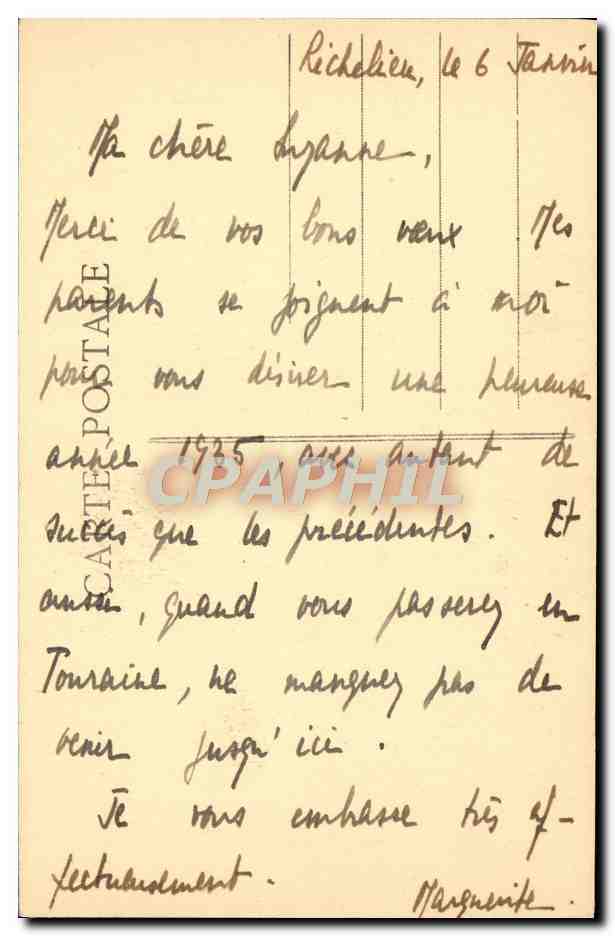 Richelieu, le 6 Janvier
Ma chère Suzanne,
Merci de vos bons vœux Mes
parents se joignent à moi
pour vous désirer une heureuse
année 1935, avec autant de
succès que les précédentes. Et
aussi, quand vous passerez en
Touraine, ne manquez pas de
venir jusqu'ici.
Je vous embrasse très af-
fectueusement.
Marguerite.
CARTE POSTALE
CPAPHIL